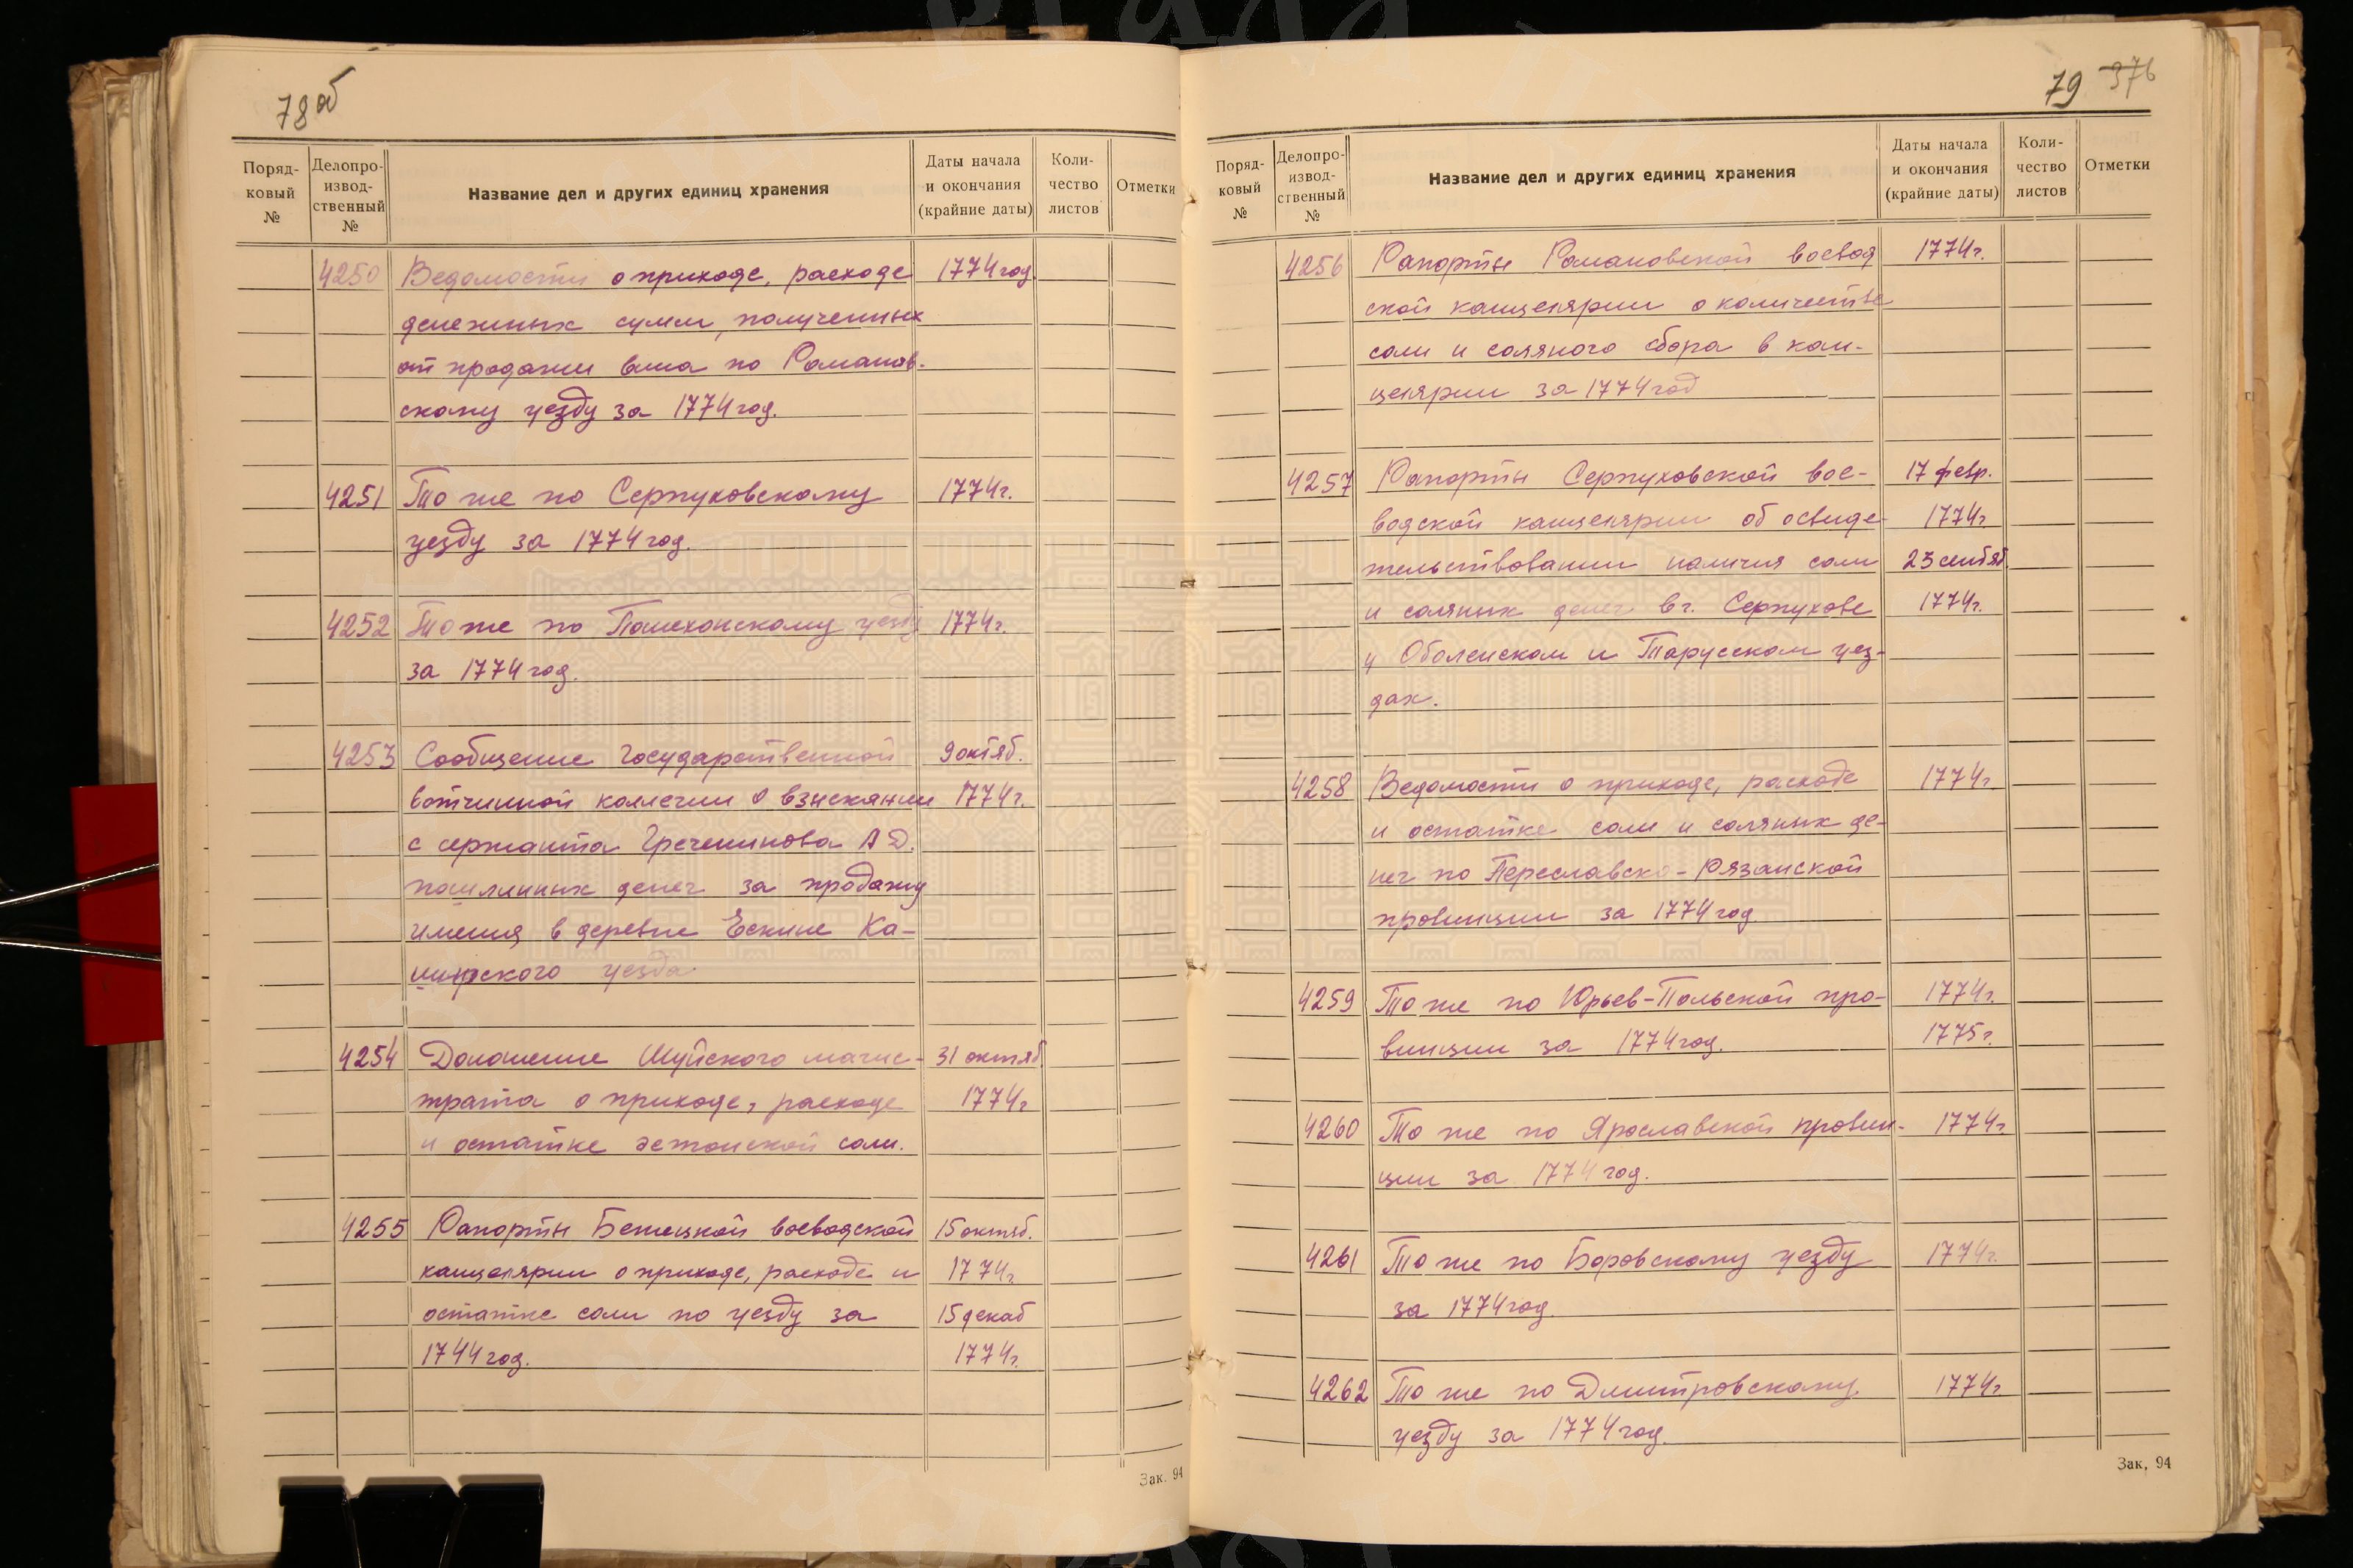 78об
Поряд-
ковый
№
Делопро-
извод-
ственный
№
Название дел и других единиц хранения
Даты начала
и окончания
(крайние даты)
Коли-
чество
листов
Отметки
4250 Ведомости о приходе, расходе 1774 год.
денежных сумм, полученных
от продажи вина по Романов-
скому уезду за 1774 год.
4251 То же по Серпуховскому 1774г.
уезду за 1774 год.
4252 То же по Пошехонскому уезду 1774г.
за 1774 год.
4253 Сообщение Государственной 9 октяб.
вотчинной коллегии о взыскании 1774г.
с сержанта Гречешникова А Д.
пошлинных денег за продажу
имения в деревне Ескине Ка-
ширского уезда
4254 Доношение Шуйского магис- 31 октяб.
трата о приходе, расходе 1774г
и остатке эстонской соли.
4255 Рапорты Бежецкой воеводской 15 октяб.
канцелярии о приходе, расходе и 1774г
остатке соли по уезду за 15 декаб
1744 год. 1774г.
Зак. 94
79 376
Поряд-
ковый
№
Делопро-
извод-
ственный
№
Название дел и других единиц хранения
Даты начала
и окончания
(крайние даты)
Коли-
чество
листов
Отметки
4256 Рапорты Романовской воевод 1774г.
ской канцелярии о количестве
соли и соляного сбора в кан-
целярии за 1774 год
4257 Рапорты Серпуховской вое- 17 февр.
водской канцелярии об освиде- 1774г
тельствовании наличия соли 23 сентяб
и соляных денег в г. Серпухове 1774г.
и Оболенском и Тарусском уез-
дах.
4258 Ведомости о приходе, расходе 1774г
и остатке соли и соляных де-
нег по Переславско-Рязанской
провинции за 1774 год
4259 То же по Юрьев-Польской про- 1774г.
винции за 1774 год. 1775г.
4260 То же по Ярославской провин- 1774г
ции за 1774 год.
4261 То же по Боровскому уезду 1774г.
за 1774 год.
4262 То же по Дмитровскому 1774г
уезду за 1774 год.
Зак. 94